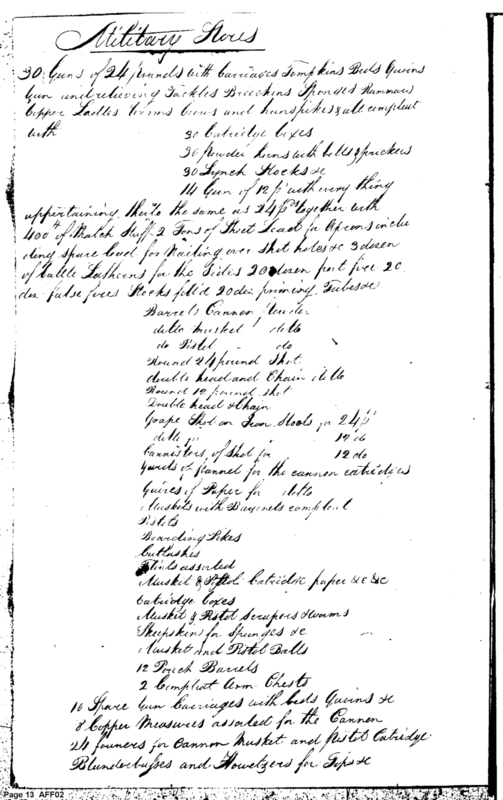 Military Stores
30 Guns of 24 pounds with Carriages Tompkins Beds Quoins
Gun and relieving Tackles Breechins Sponges Rammars
Copper Ladles Worms Crows and hanspikes & all compleat
with
30 Catridge boxes
30 powder horns with belts & prickers
30 Lynch Stocks &c
14 Gun of 12 pd with every thing
appertaining the to the same as 24 pds together with
400 of Match Stuff 2 Tons of Sheet Lead for Aprons inclu
ding spare lead for Nailing over shot holes &c 3 dozen
of battle Lathorns for the Sides 20 dozen port fire 20
doz false fires Stocks fill'd 20 doz priming Tubes &c
Barrels Cannon Powder
ditto Musket ditto
do Pistol do
Round 24 pound Shot
double head and Chain ditto
Round 12 pound shot
Double head & Chain
Grape Shot on Iron Stools for 24 pd
ditto 12 do
Cannisters of Shot for 12 do
Yards of flannel for the cannon catridges
Quires of Paper for ditto
Muskets with Bayonets compleat
Pistols
Boarding Pikes
Cutlashes
Flints assorted
Musket & Pistol Catridge paper &c &c
Catridge Boxes
Musket & Pistol Scrapers & worms
Sheepskins for Spunges &c
Musket and Pistol Balls
12 Pouch Barrels
2 Compleat Arm Chests
10 Spare Gun Carriages with beds Quoins &c
8 Copper Measures assorted for the Cannon
24 formers for Cannon Musket and Pistol Catridge
Blunderbusses and Howetzers for Tops &c
Page 13 AFF02